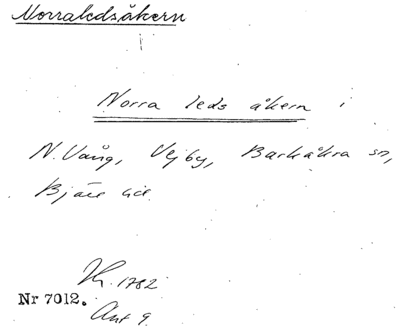 Norraledsåkern
Norra leds åkern i
N. Vång, Vejby, Barkåkra sn,
Bjäre hd.
1782
Nr 7012.
Akt 9.